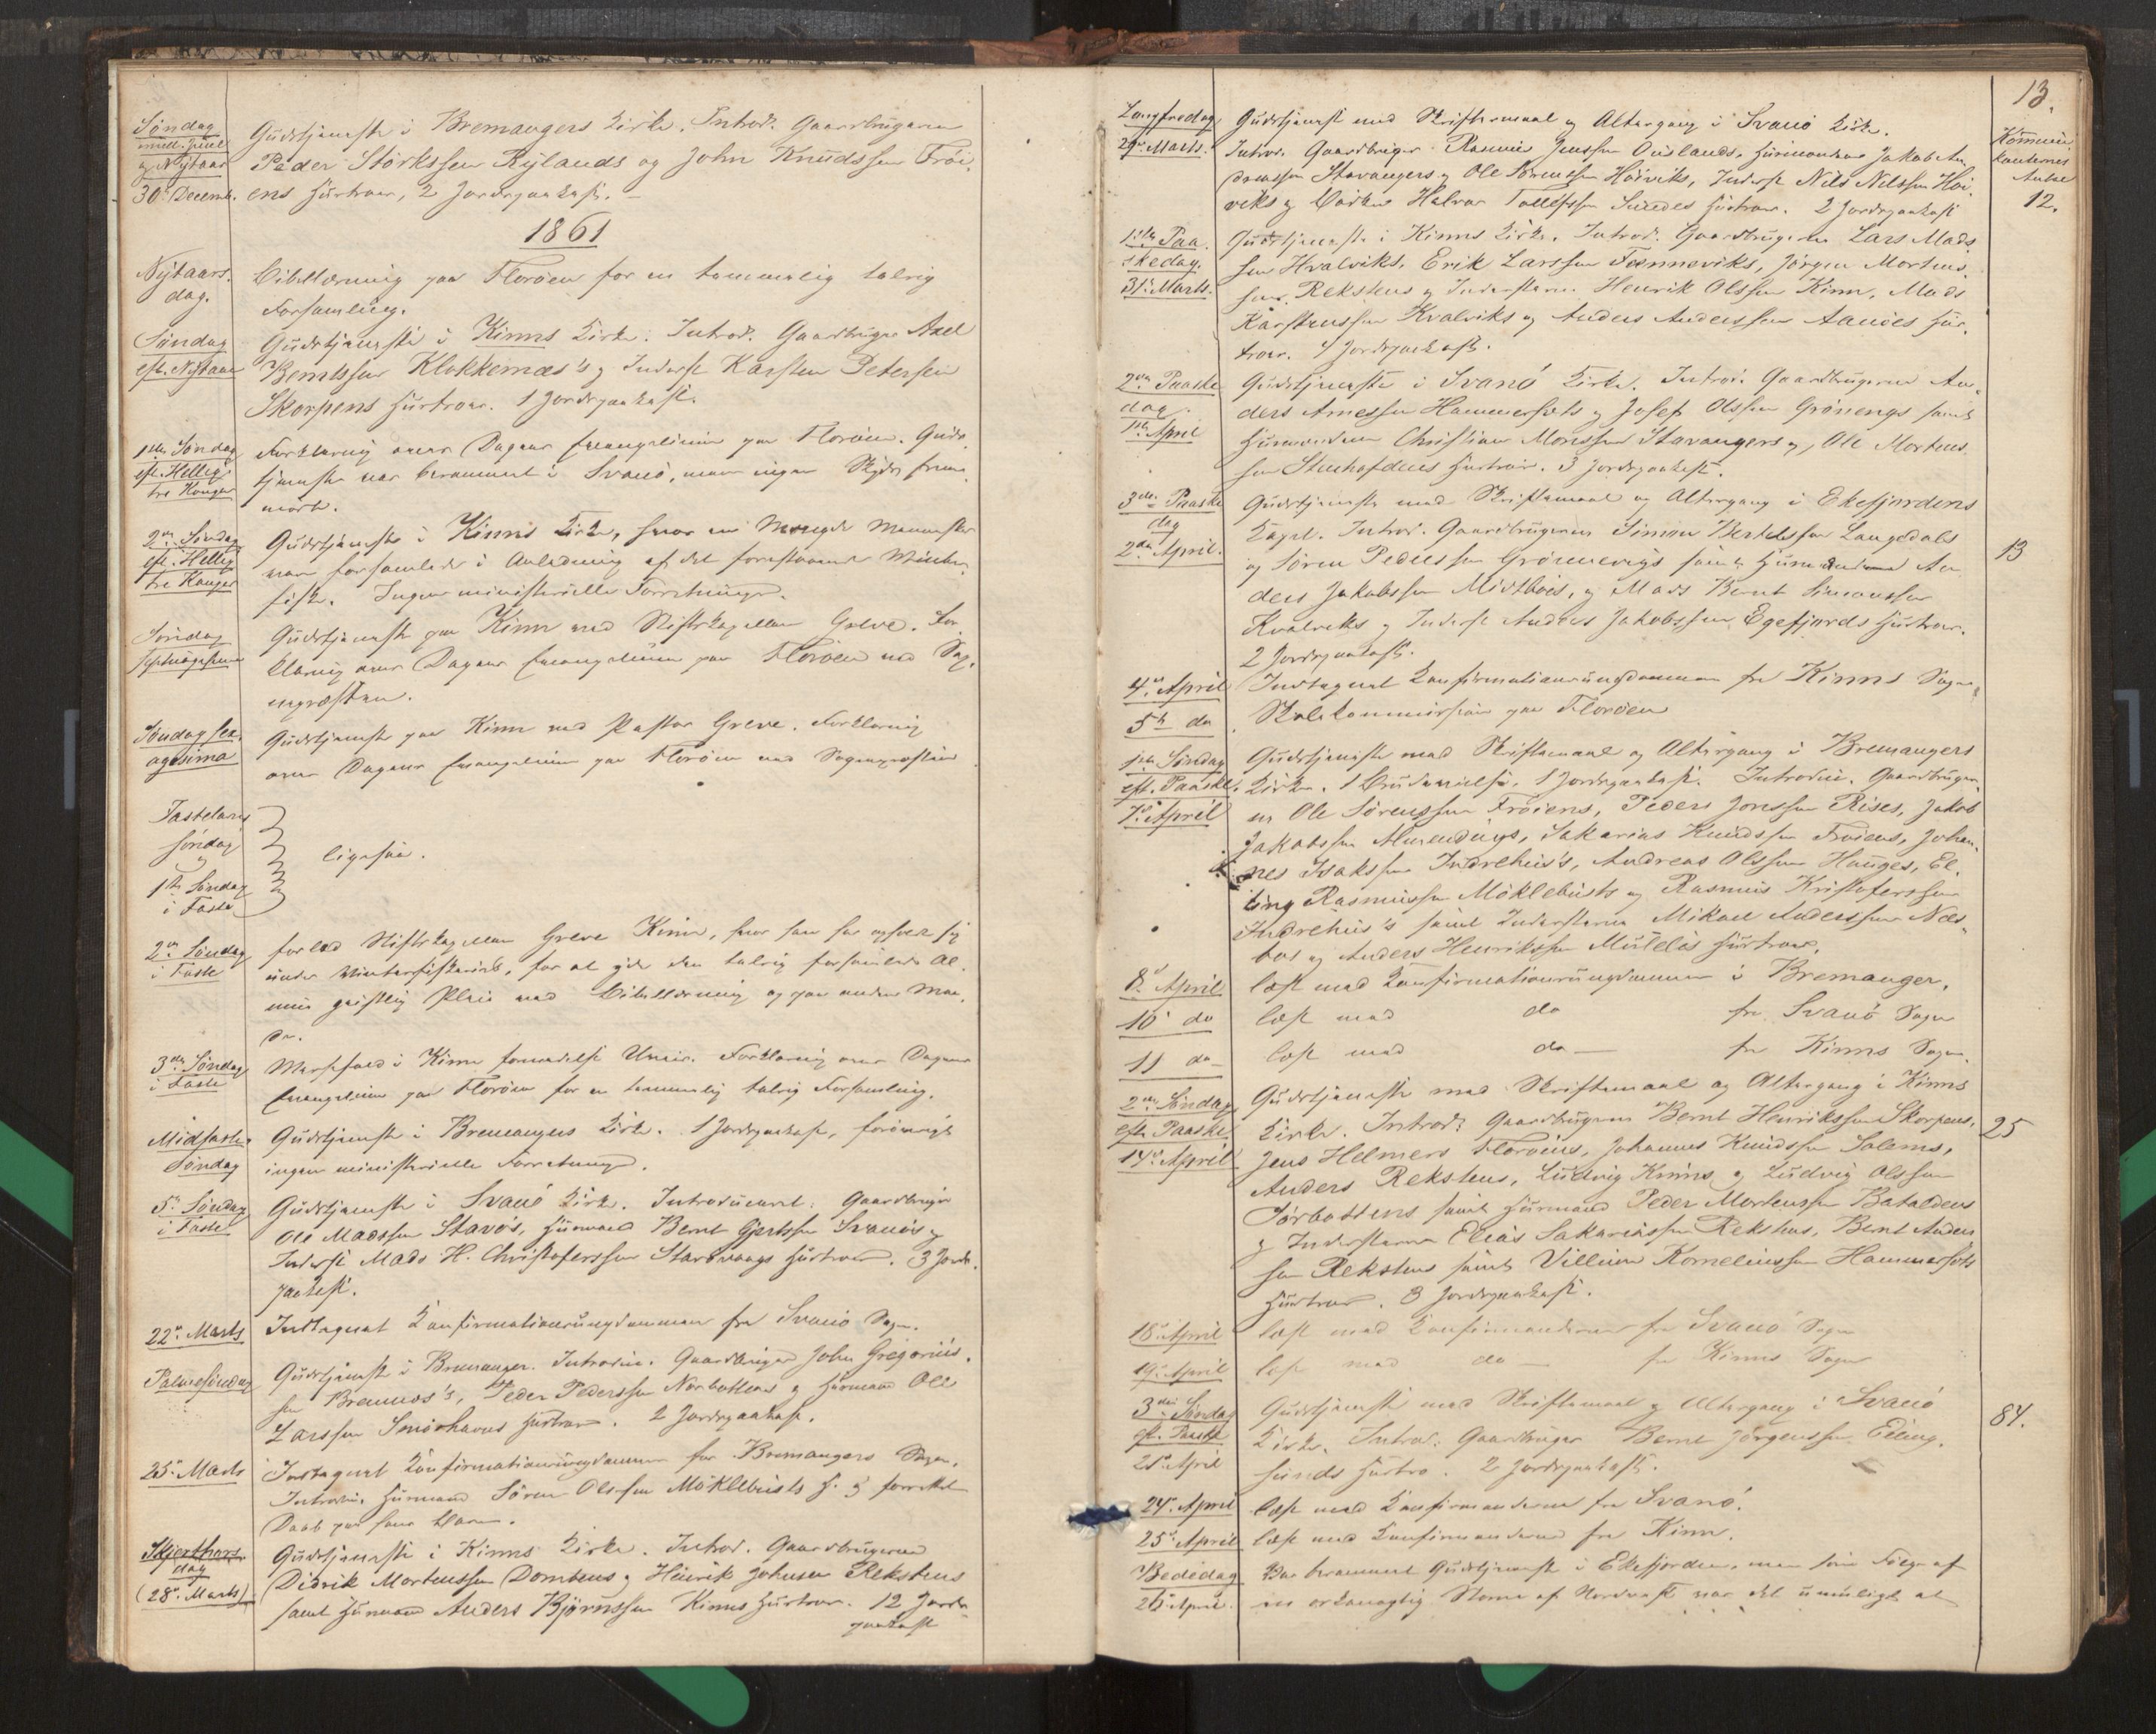 Søndag
mell. Juul
og Nÿtaar
30' Decemb.
Gudstjeneste i Bremangers Kirke. Introd. Gaardbrugerne
Peder Størkssen Rÿlands og John Knudssen Frøi-
ens Hustroer, 2 Jordpaakast. -
1861
Nÿtaars-
dag.
Bibellæsning paa Florøen for en temmelig talrig
Forsamling.
Søndag
eft. Nÿtaar
Gudstjeneste i Kinns Kirke. Introd. Gaardbruger Axel
Berntssen Klokkernæs's og Inderst Karsten Petersen
Skorpens Hustroer. 1 Jordpaakast.
1ste Søndag
eft. Hellig
tre Konger
Forklaring over Dagens Evangelium paa Florøen. Guds-
tjeneste var berammet i Svanø, men ingen Skyds frem-
mødte.
2den Søndag
eft. Hellig
tre Konger
Gudstjeneste i Kinns Kirke, hvor en Mængde Mennesker
var forsamlede i Anledning af det forestaaende Vinter-
fiske. Ingen ministerielle Forretninger.
Søndag
Septuagesima
Gudstjeneste paa Kinn ved Stiftskapellan Greve. For-
klaring over Dagens Evangelium paa Florøen ved Sog-
nepræsten.
Søndag Sex-
agesima
Gudstjeneste paa Kinn ved Pastor Greve. Forklaring
over Dagens Evangelium paa Florøen ved Sognepræsten
Fastelavns
søndag
og
1ste Søndag
i Faste
ligesaa.
2den Søndag
i Faste
forlod Stiftskapellan Greve Kinn, hvor han har opholdt sig
under Vinterfiskeriet, for at yde den talrig forsamlede Al-
mue geistlig Pleie ved Bibellæsning og paa anden Maa-
de.
3die Søndag
i Faste
Messefald i Kinn formedelst Uveir. Forklaring over Dagens
Evangelium paa Florøen for en temmelig talrig Forsamling.
Midfaste
Søndag
Gudstjeneste i Bremangers Kirke. 1 Jordpaakast, forøvrigt
ingen ministerielle Forretninger.
5te Søndag
i Faste
Gudstjeneste i Svanø Kirke. Introduceret: Gaardbruger
Ole Madssen Stavø's, Husmand Bernt Gjertssen Svanøs og
Inderst Mads H. Christofersson Hustroer. 3 Jord-
paakast.
22de Marts
Indtegnet Konfirmationsungdommen fra Svanø Sogn.
Palmesøndag
Gudstjeneste i Bremanger. Introduc. Gaardbruger John Gregorius-
sen Bremnes's, Peder Pederssen Nørbottens og Husmand Ole
Larssen Smørhavns Hustroer. 2 Jordpaakast.
25de Marts
Indtegnet Konfirmationsungdommen for Bremangers Sogn.
Introduc. Husmand Søren Olssen Møklebusts H. og forrettet
Daab paa hans Barn.
Skjærthors-
dag
(28de Marts)
Gudstjeneste i Kinns Kirke. Introd. Gaardbrugerne
Didrik Mortenssen Dombens og Henrik Johnsen Rekstens
samt Husmand Anders Bjørnssen Kinns Hustroer. 12 Jord-
paakast
13.
Langfredag
29de Marts.
Gudstjenest med Skriftemaal og Altergang i Svanø Kirke.
Introd. Gaardbruger Rasmus Jenssen Ouslands, Husmændene Jakob An-
dreassen Stavangers og Ole Sørenssen Høiviks, Inderst Nils Nilssen Høi-
viks og Halvor Tollefssen Hustroer. 2 Jordpaakast
Kommuni-
kanternes
Antal
12.
1ste Paa-
skedag.
31te Marts.
Gudstjeneste i Kinns Kirke. Introd. Gaardbrugerne Lars Mads-
sen Hvalviks, Erik Larssen Fænneviks, Jørgen Mortens-
sen Rekstens og Inderstene Henrik Olssen Kinn, Mads
Karstenssen Kvalviks og Anders Anderssen Aanøes Hus-
troer. 4 Jordpaakast.
2den Paaske
dag.
1ste April
Gudstjeneste i Svanø Kirke. Introd. Gaardbrugerne An-
ders Arnessen Hammersets og Josef Olssen Grønengs samt
Husmændene Christian Monssen Stavangers og Ole Mortens-
sen Hustroer. 3 Jordpaakast.
3die Paaske
dag
2den April.
Gudstjeneste med Skriftemaal og Altergang i Ekefjordens
Kapel. Introd. Gaardbrugerne Simon Bertelssen Langedals
og Søren Pederssen Grønnevigs samt Husmændene An-
ders Jakobssen Midtbøes, og Mads Bernt Simonssen
Kvalviks og Inderst Anders Jakobssen Egefjords Hustroer.
2 Jordpaakast.
13
4de April
5te do
Indtegnet Konfirmationsungdommen fra Kinns Sogn.
Skolekommission paa Florøen
1ste Søndag
eft. Paaske.
7de April
Gudstjeneste med Skriftemaal og Altergang i Bremangers
Kirke. 1 Brudevielse, 1 Jordpaakast. Introduc. Gaardbruger-
ne Ole Sørenssen Frøiens, Peder Jonssen Rises, Jakob
Jakobssen Almendings, Sakarias Knudssen Frøiens, Johan-
nes Isakssen Indrehus's, Andreas Olssen Hauges, El-
ling Rasmussen Møklebusts og Rasmus Kristofersen
Indrehus's samt Inderstene Mikael Anderssen Næs-
bøs og Anders Henrikssen Hustroer.
8de April
læst med Konfirmationsungdommen i Bremanger.
10de do
læst med do fra Svanø Sogn
11 do -
læst med do - fra Kinns Sogn.
2den Søndag
eft. Paaske
14de April
Gudstjeneste med Skriftemaal og Altergang i Kinns
Kirke. Introd. Gaardbrugerne Bernt Henrikssen Skorpens,
Jens Helmers Florøens, Johannes Knudssen Solems,
Anders Rekstens, Ludvig Kinns og Ludvig Olssen
Sørbottens samt Husmand Peder Mortenssen Bataldens
og Inderstene Elias Sakariassen Rekstens, Bernt Anders-
sen Rekstens samt Villum Korneliussen Hammersets
Hustroer. 3 Jordpaakast.
25
18de April
læst med Konfirmanderne fra Svanø Sogn
19de April
læst med do - fra Kinns Sogn
3die Søndag
eft. Paaske
21de April
Gudstjeneste med Skriftemaal og Altergang i Svanø
Kirke. Introd. Gaardbruger Bernt Jørgenssen Eding-
sunds Hustro. 2 Jordpaakast.
84.
24de April
læst med Konfirmanderne fra Svanø.
25de April
læst med Konfirmanderne fra Kinn.
Bededag
26de April.
Var berammet Gudstjeneste i Ekefjorden, men som Følge af
en orkanagtig Storm af Nordvest var det umuligt at